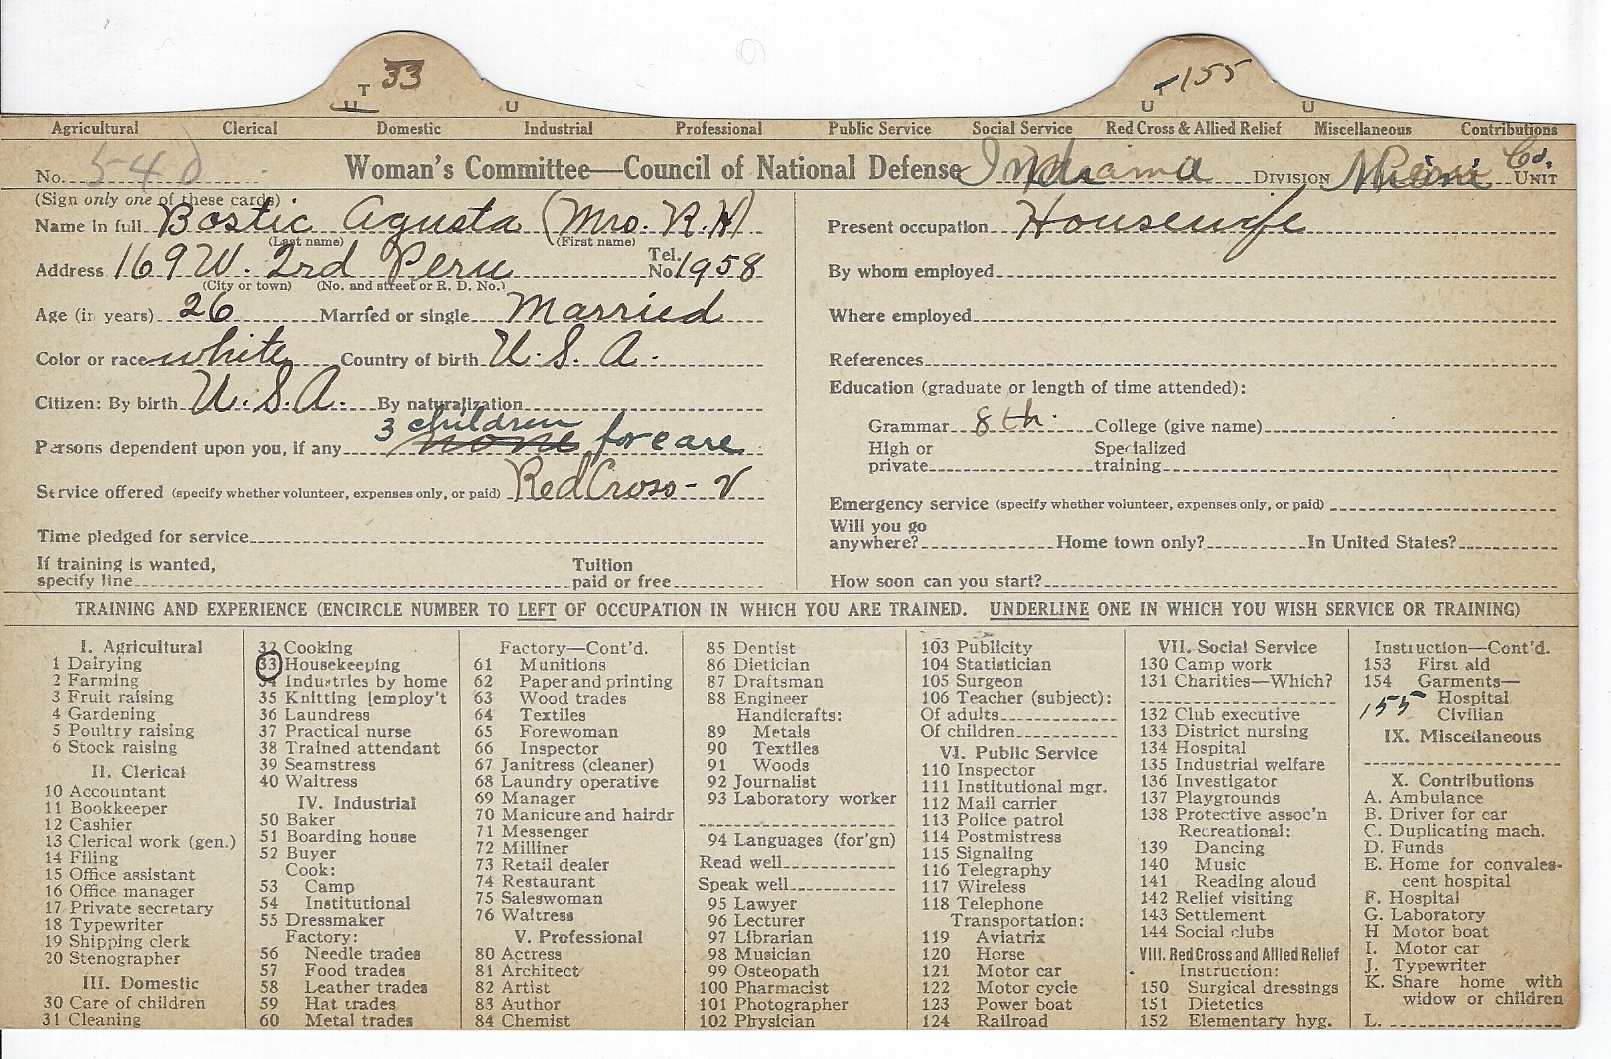 T 33 T 155
U U U U
Agricultural Clerical Domestic Industrial Professional Public Service Social Service Red Cross & Allied Relief Miscellaneous Contributions
No. 540 Woman's Committee—Council of National Defense Indiana DIVISION Miami Co. UNIT
(Sign only one of these cards)
Name in full Bostic Agusta (Mrs. R.H)
(Last name) (First name)
Address 169 W. 2rd Peru Tel. No. 1958
(City or town) (No. and street or R. D. No.)
Age (in years) 26 Married or single Married
Color or race white Country of birth U.S.A.
Citizen: By birth U.S.A. By naturalization
3 children
Persons dependent upon you, if any none for care
Service offered (specify whether volunteer, expenses only, or paid) Red Cross - V
Time pledged for service
If training is wanted, specify line Tuition paid or free
Present occupation Housewife
By whom employed
Where employed
References
Education (graduate or length of time attended):
Grammar 8th. College (give name)
High or private Specialized training
Emergency service (specify whether volunteer, expenses only, or paid)
Will you go anywhere? Home town only? In United States?
How soon can you start?
TRAINING AND EXPERIENCE (ENCIRCLE NUMBER TO LEFT OF OCCUPATION IN WHICH YOU ARE TRAINED. UNDERLINE ONE IN WHICH YOU WISH SERVICE OR TRAINING)
I. Agricultural
1 Dairying
2 Farming
3 Fruit raising
4 Gardening
5 Poultry raising
6 Stock raising
II. Clerical
10 Accountant
11 Bookkeeper
12 Cashier
13 Clerical work (gen.)
14 Filing
15 Office assistant
16 Office manager
17 Private secretary
18 Typewriter
19 Shipping clerk
20 Stenographer
III. Domestic
30 Care of children
31 Cleaning
32 Cooking
33 Housekeeping
34 Industries by home
35 Knitting [employ't
36 Laundress
37 Practical nurse
38 Trained attendant
39 Seamstress
40 Waitress
IV. Industrial
50 Baker
51 Boarding house
52 Buyer
Cook:
53 Camp
54 Institutional
55 Dressmaker
Factory:
56 Needle trades
57 Food trades
58 Leather trades
59 Hat trades
60 Metal trades
Factory—Cont'd.
61 Munitions
62 Paper and printing
63 Wood trades
64 Textiles
65 Forewoman
66 Inspector
67 Janitress (cleaner)
68 Laundry operative
69 Manager
70 Manicure and hairdr
71 Messenger
72 Milliner
73 Retail dealer
74 Restaurant
75 Saleswoman
76 Waitress
V. Professional
80 Actress
81 Architect
82 Artist
83 Author
84 Chemist
85 Dentist
86 Dietician
87 Draftsman
88 Engineer
Handicrafts:
89 Metals
90 Textiles
91 Woods
92 Journalist
93 Laboratory worker
94 Languages (for'gn)
Read well
Speak well
95 Lawyer
96 Lecturer
97 Librarian
98 Musician
99 Osteopath
100 Pharmacist
101 Photographer
102 Physician
103 Publicity
104 Statistician
105 Surgeon
106 Teacher (subject):
Of adults
Of children
VI. Public Service
110 Inspector
111 Institutional mgr.
112 Mail carrier
113 Police patrol
114 Postmistress
115 Signaling
116 Telegraphy
117 Wireless
118 Telephone
Transportation:
119 Aviatrix
120 Horse
121 Motor car
122 Motor cycle
123 Power boat
124 Railroad
VII. Social Service
130 Camp work
131 Charities—Which?
132 Club executive
133 District nursing
134 Hospital
135 Industrial welfare
136 Investigator
137 Playgrounds
138 Protective assoc'n
Recreational:
139 Dancing
140 Music
141 Reading aloud
142 Relief visiting
143 Settlement
144 Social clubs
VIII. Red Cross and Allied Relief
Instruction:
150 Surgical dressings
151 Dietetics
152 Elementary hyg.
Instruction—Cont'd.
153 First aid
154 Garments—
155 Hospital
Civilian
IX. Miscellaneous
X. Contributions
A. Ambulance
B. Driver for car
C. Duplicating mach.
D. Funds
E. Home for convales-
cent hospital
F. Hospital
G. Laboratory
H Motor boat
I. Motor car
J. Typewriter
K. Share home with
widow or children
L.